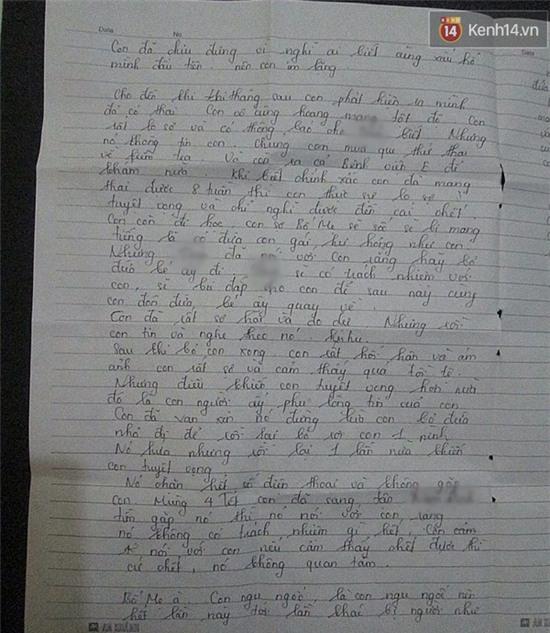 14 Kenh14.vn
Date No
Con đã chịu đựng vì nghĩ ai biết cũng xấu hổ
mình đầu tiên nên con im lặng.
Cho đến khi tháng sau con phát hiện ra mình
đã có thai. Con vô cùng hoang mang tột độ. Con
rất lo sợ và có thông báo cho biết. Nhưng
nó không tin con, chúng con mua que thử thai
về kiểm tra. Và con ra cả Bệnh viện E để
khám nữa. Khi biết chính xác con đã mang
thai được 8 tuần thì con thực sự lo sợ
tuyệt vọng và chỉ nghĩ được đến cái chết.
Con còn đi học con sợ Bố Mẹ sẽ sốc sẽ bị mang
tiếng là có đứa con gái hư hỏng như con.
Nhưng đã nói với con rằng hãy bỏ
đứa bé ấy đi sẽ có trách nhiệm với
con, sẽ bù đắp cho con để sau này cùng
con đón đứa bé ấy quay về.
Con đã rất sợ hãi và do dự. Nhưng rồi
con tin và nghe theo nó.
Sau khi bỏ con xong con rất hối hận và ám
ảnh con rất sợ và cảm thấy quá tồi tệ.
Nhưng điều khiến con tuyệt vọng hơn nữa
đó là con người ấy phụ lòng tin của con
Con đã van xin nó đừng lừa con bỏ đứa
nhỏ đi để rồi lại bỏ rơi con 1 mình
Nó hứa nhưng rồi lại 1 lần nữa khiến
con tuyệt vọng.
Nó chặn hết số điện thoại và không gặp
con. Mùng 4 Tết con đã sang tận
tìm gặp nó thì nó nói với con rằng
nó không có trách nhiệm gì hết. Còn
nói với con nếu cảm thấy chết được thì
cứ chết, nó không quan tâm.
Bố Mẹ à. Con ngu ngốc, là con ngu ngốc nên
hết lần này tới lần khác bị người như
AN KHÁNH